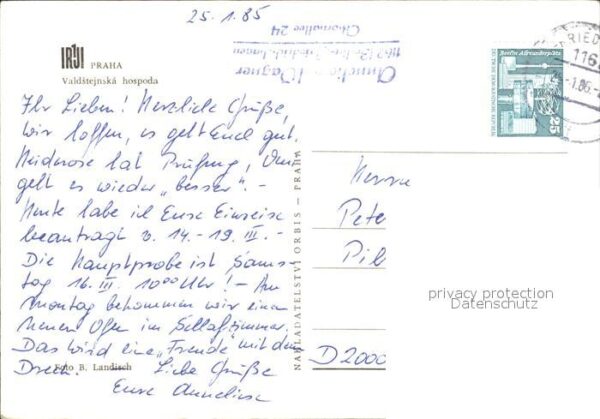 25.1.85
PRAHA
Valdštejnská hospoda
Ihr Lieben! Herzliche Grüße,
wir hoffen, es geht Euch gut.
Heiderose hat Prüfung,
geht es wieder „besser“. –
Heute habe ich Eure Einreise
beantragt v. 14. – 19. III. –
Die Hauptprobe ist Sams-
tag 16. III. 10⁰⁰ Uhr! – Am
Montag bekommen wir einen
neuen Ofen im Schlafzimmer.
Das wird eine „Freude“ mit dem
Dreck! Liebe Grüße
Eure Anneliese
Foto B. Landisch
NAKLADATELSTVÍ ORBIS – PRAHA
Wagner
Berlin Alexanderplatz
DEUTSCHE DEMOKRATISCHE REPUBLIK
25
116
Herrn
Pete
Pil
D 2000
privacy protection
Datenschutz